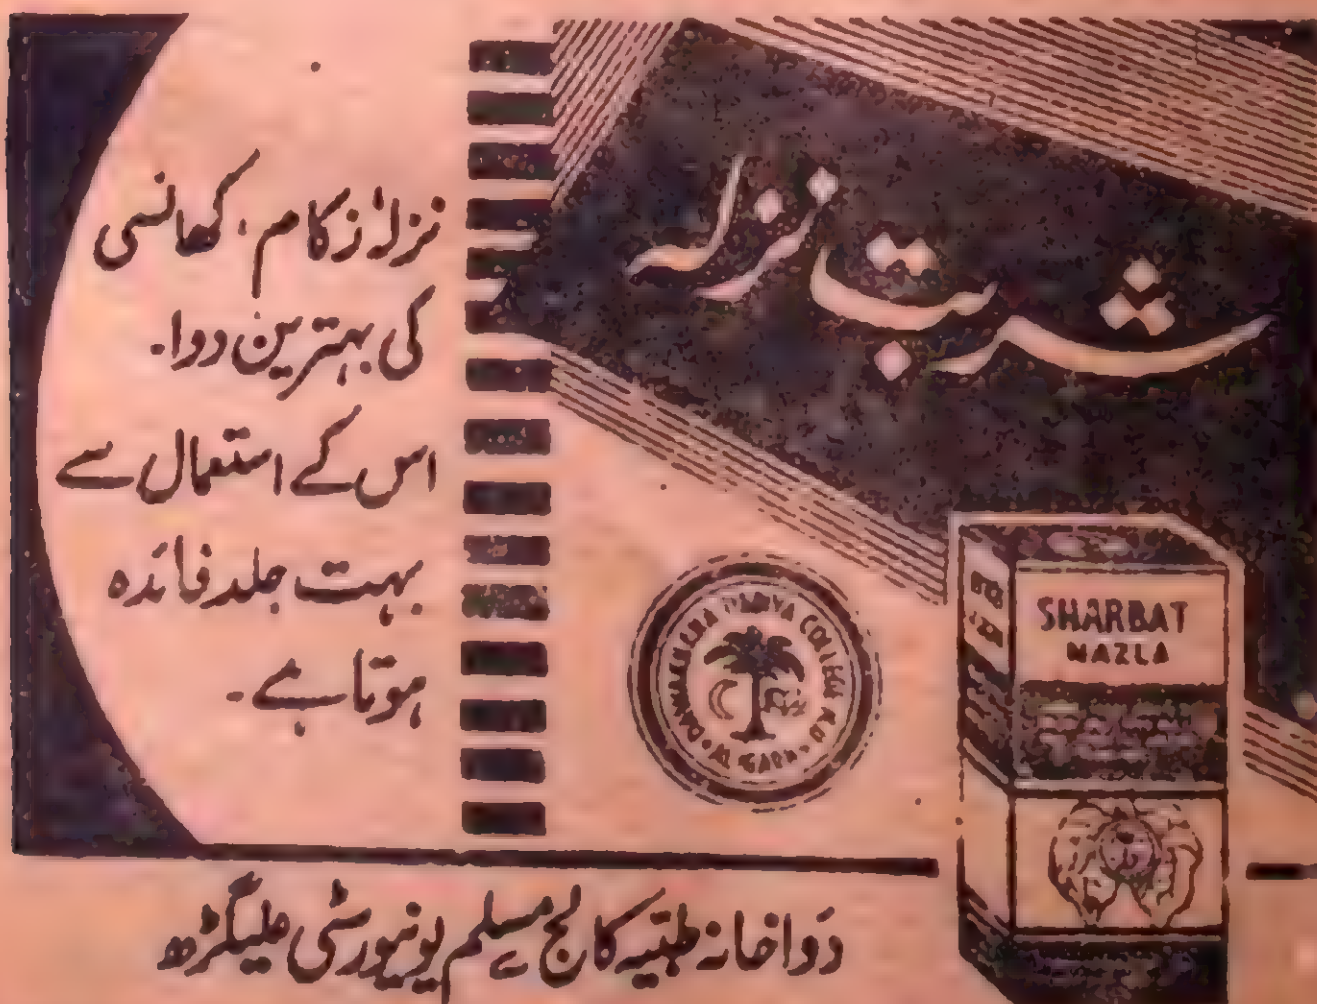 شربت نزلہ
نزلہ زکام، کھانسی
کی بہترین دوا۔
اس کے استعمال سے
بہت جلد فائدہ
ہوتا ہے۔
DAWAKHANA TIBBIYA COLLEGE
ALIGARH
SHARBAT
NAZLA
دَواخانہ طبّیہ کالج مسلم یونیورسٹی علیگڑھ